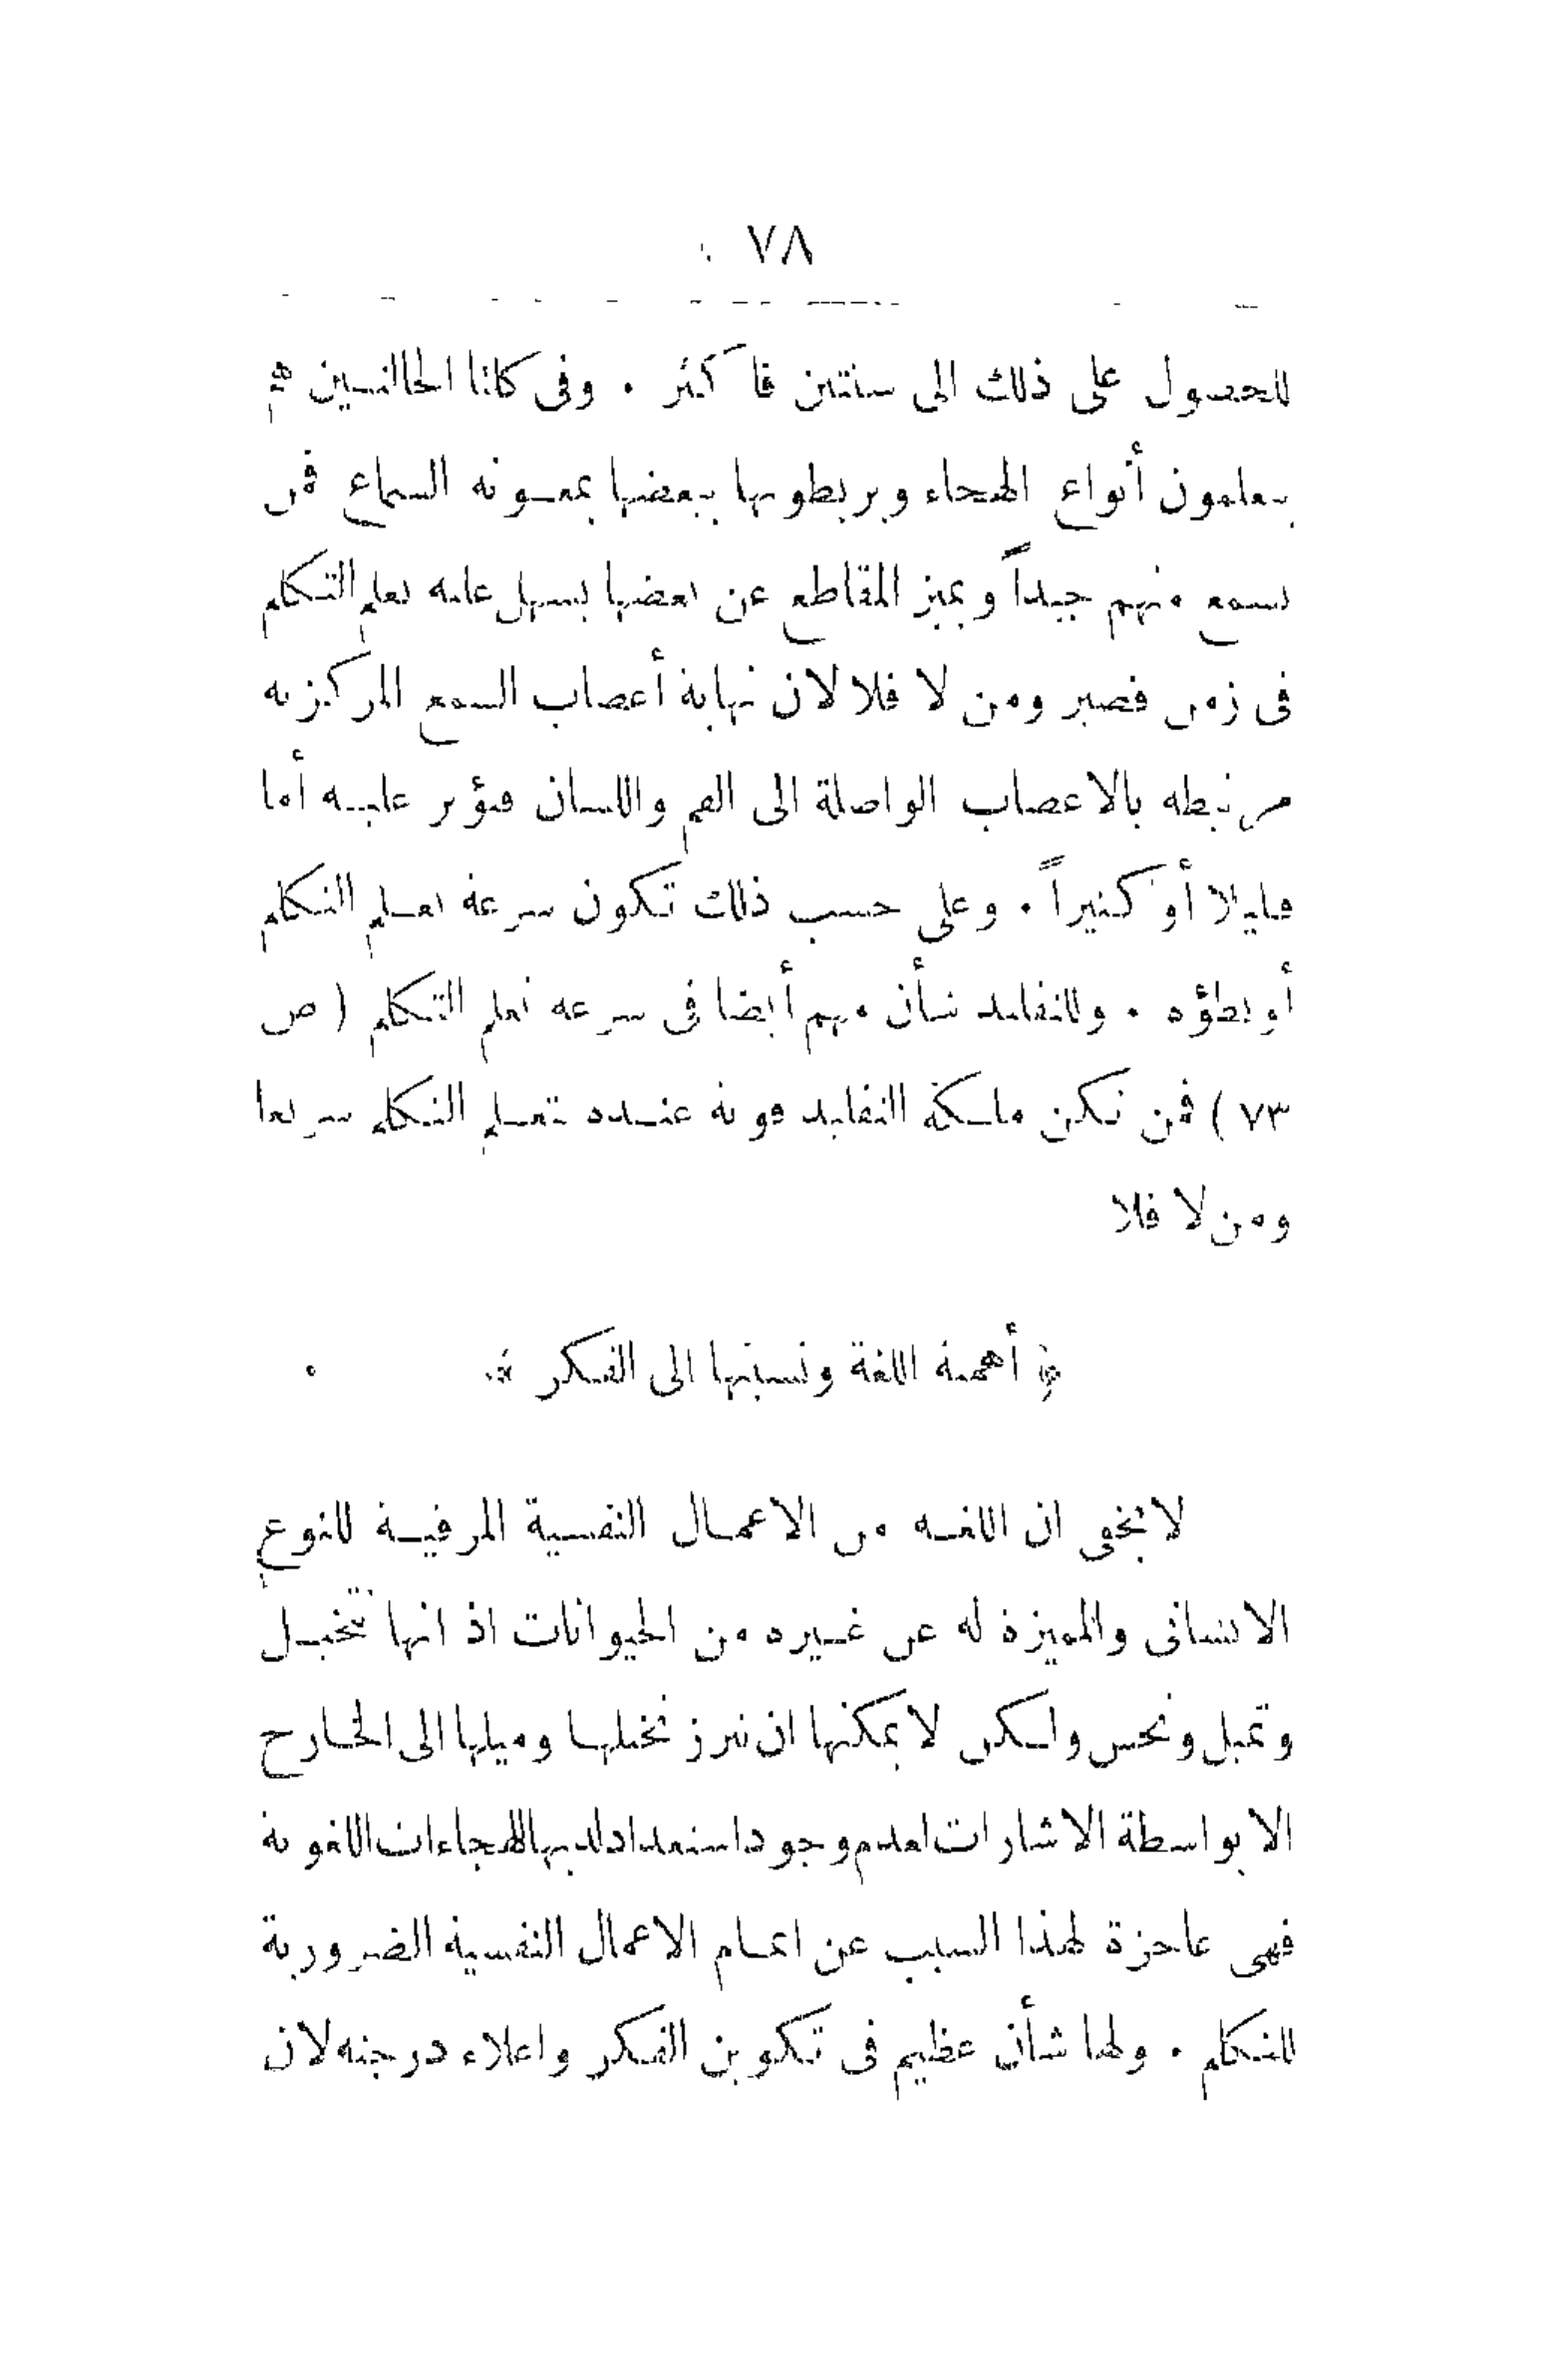 ٧٨
للحصول على ذلك الى سنتين فاكثر . وفى كلتا الحالتين هم
يعلمون أنواع الهجاء ويربطونها ببعضها بمعونة السماع فمن
يسمع منهم جيداً ويميز المقاطع عن بعضها يسهل عليه تعلم التكلم
فى زمن قصير ومن لا فلا لان نهاية أعصاب السمع المركزية
مرتبطة بالاعصاب الواصلة الى الفم واللسان فتؤثر عليه أما
قليلا أو كثيراً . وعلى حسب ذلك تكون سرعة تعلم التكلم
أو بطؤه . وللتقليد شأن مهم أيضا فى سرعة تعلم التكلم ( ص
٧٣ ) فمن تكن ملكة التقليد قوية عنده تعلم التكلم سريعا
ومن لا فلا
﴿ أهمية اللغة ونسبتها الى الفكر ﴾
لا يخفى ان اللغة من الاعمال النفسية المرقية للنوع
الانسانى والمميزة له عن غيره من الحيوانات اذ انها تتخيل
وتميل وتحس ولكن لا يمكنها ان تبرز تخيلها وميلها الى الخارج
الا بواسطة الاشارات لعدم وجود استعداد لديها للهجاءات اللغوية
فهى عاجزة لهذا السبب عن اتمام الاعمال النفسية الضرورية
للتكلم . ولها شأن عظيم فى تكوين الفكر واعلاء درجته لان